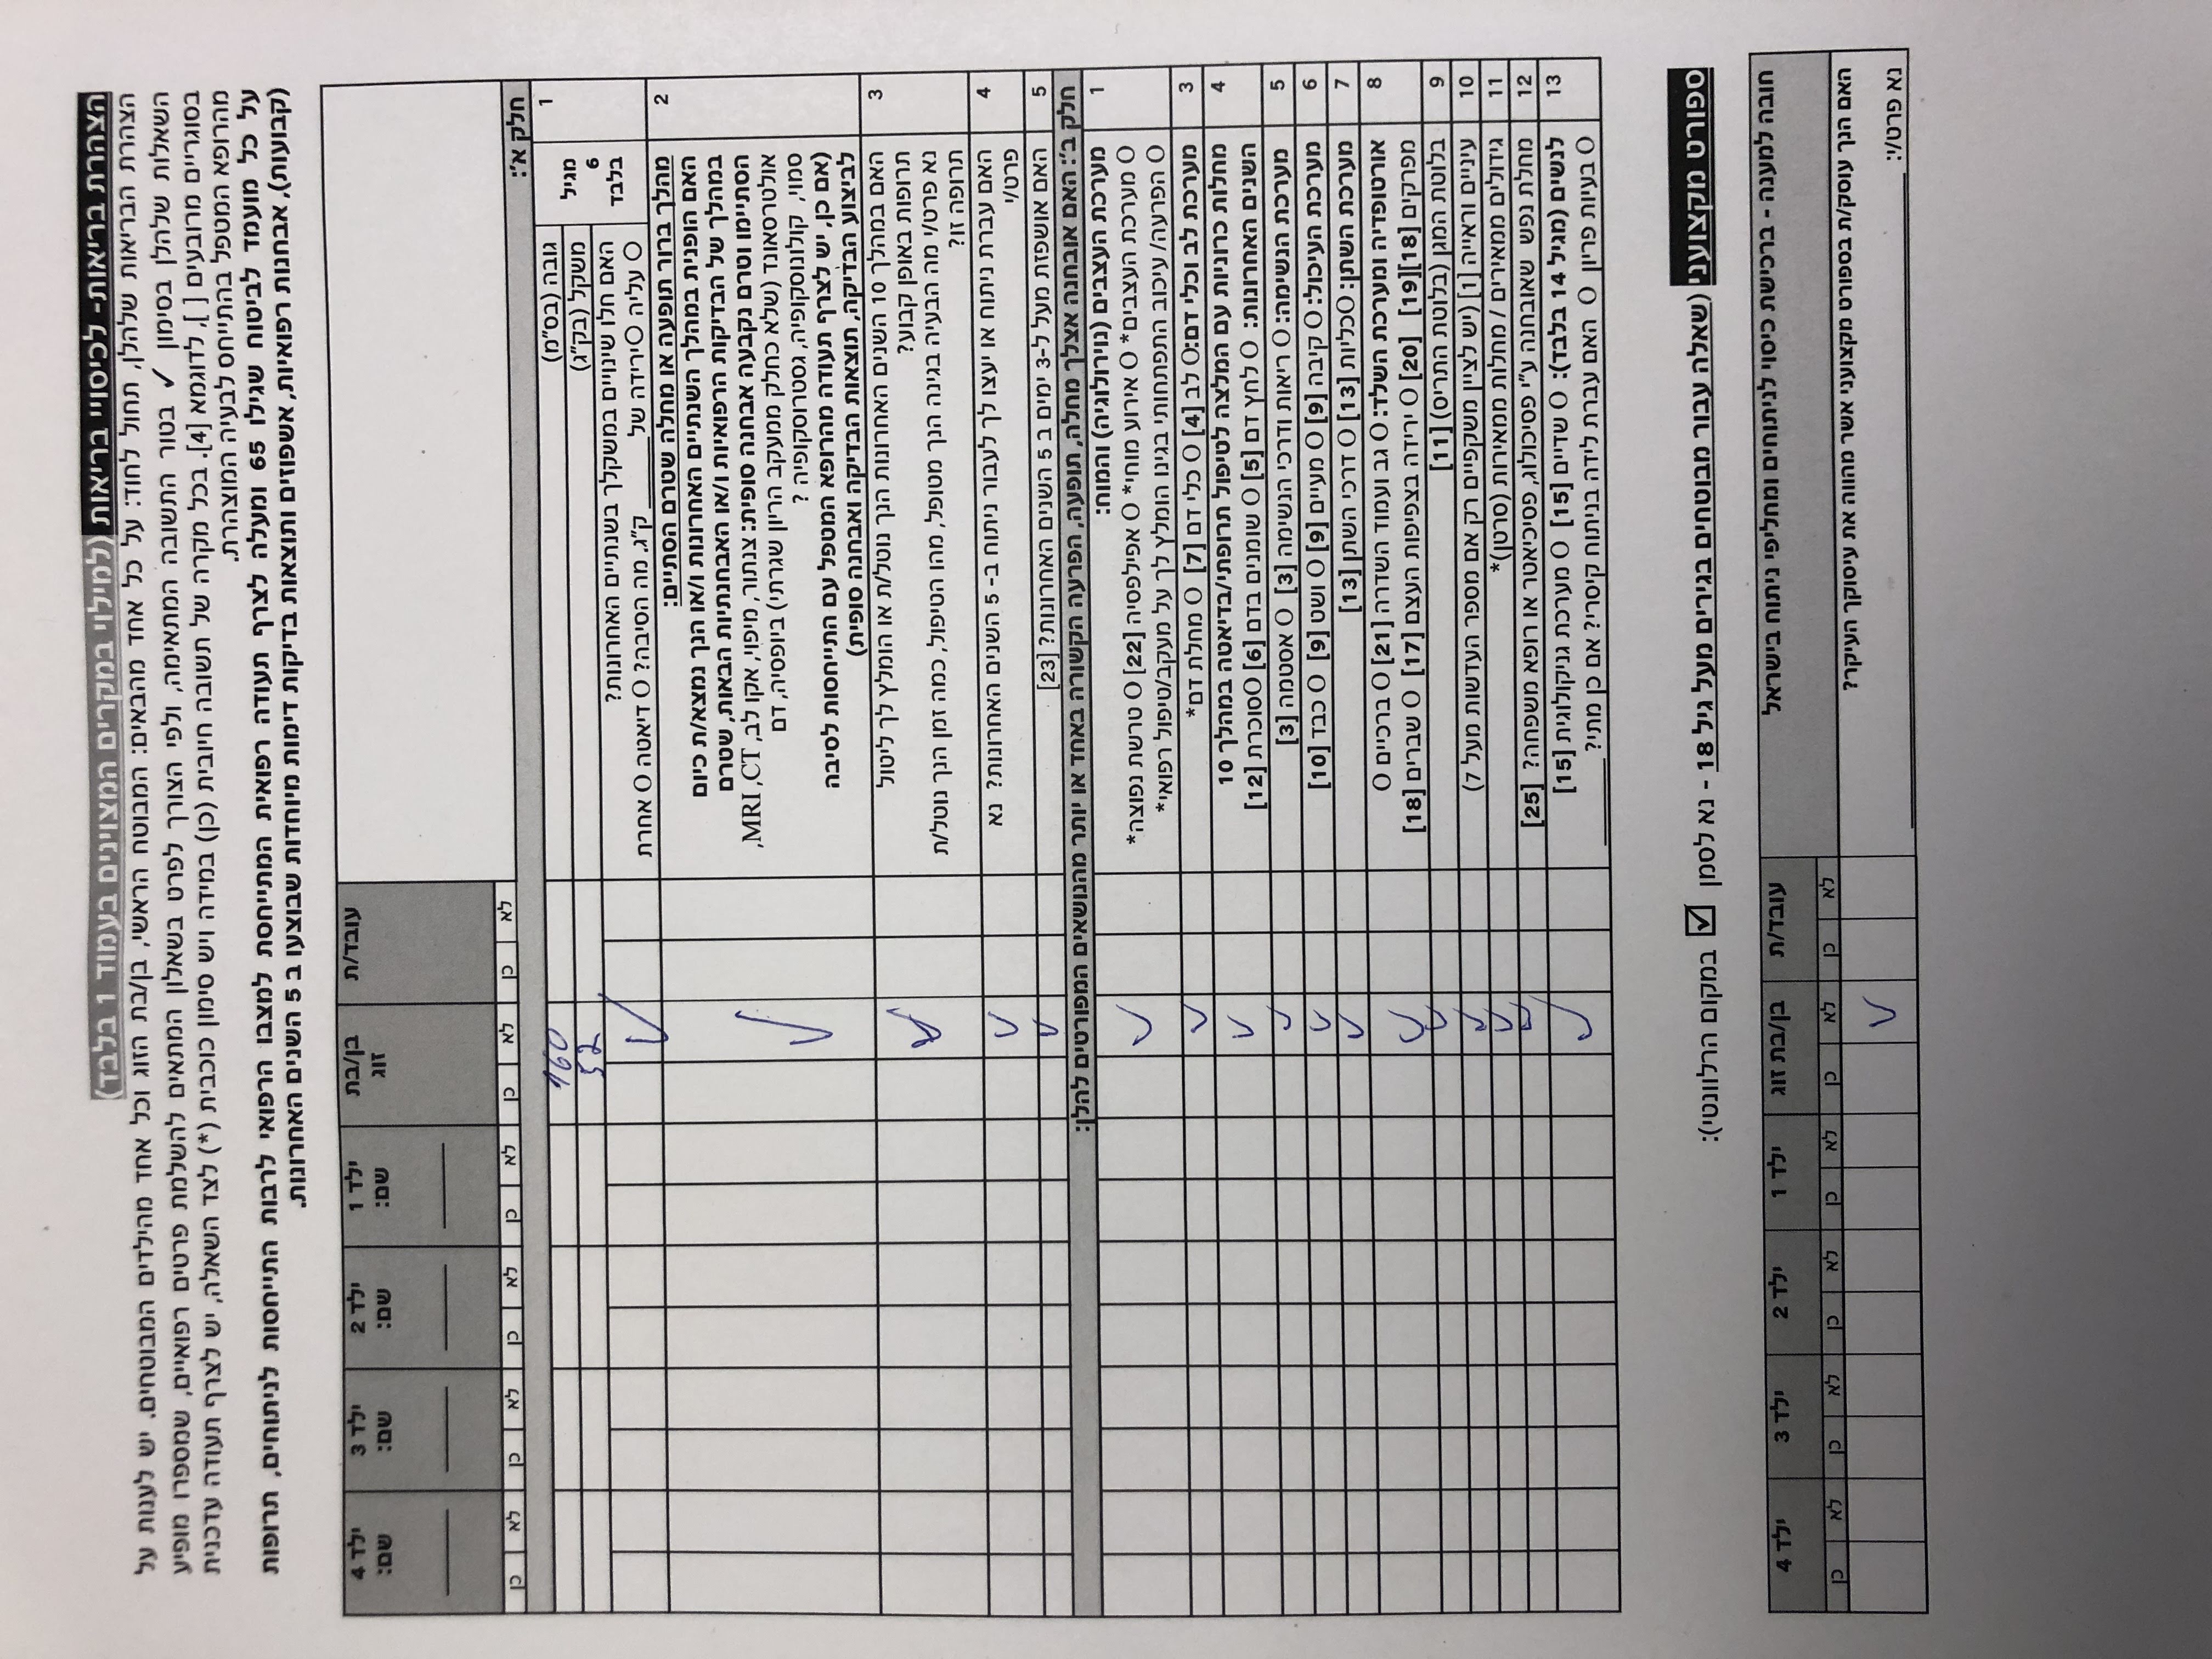 הצהרת בריאות- לכיסויי בריאות (למילוי במקרים המצוינים בעמוד 1 בלבד)
הצהרת הבריאות שלהלן, תחול לחוד: על כל אחד מהבאים: המבוטח הראשי, בן/בת הזוג וכל אחד מהילדים המבוטחים. יש לענות על
השאלות שלהלן בסימון ✓ בטור התשובה המתאימה, ולפי הצורך לפרט בשאלון המתאים להשלמת פרטים רפואיים, שמספרו מופיע
בסוגריים מרובעים [ ], לדוגמא [4]. בכל מקרה של תשובה חיובית (כן) במידה ויש סימון כוכבית (*) לצד השאלה, יש לצרף תעודה עדכנית
מהרופא המטפל בהתייחס לבעיה המוצהרת.
על כל מועמד לביטוח שגילו 65 ומעלה לצרף תעודה רפואית המתייחסת למצבו הרפואי לרבות התייחסות לניתוחים, תרופות
(קבועות), אבחנות רפואיות, אשפוזים ותוצאות בדיקות דימות מיוחדות שבוצעו ב 5 השנים האחרונות.
עובד/ת בן/בת ילד 1 ילד 2 ילד 3 ילד 4
זוג שם: שם: שם: שם:
____ ____ ____ ____
לא כן לא כן לא כן לא כן לא כן לא כן
חלק א':
1 מגיל 6 בלבד גובה (בס"מ) 160
משקל (בק"ג) 52
האם חלו שינויים במשקלך בשנתיים האחרונות? ✓
O עליה O ירידה של _____ ק"ג. מה הסיבה? O דיאטה O אחרת
2 מהלך ברור תופעה או מחלה שטרם הסתיים:
האם הופנית במהלך השנתיים האחרונות ו/או הנך נמצא/ת כיום
במהלך של הבדיקות הרפואיות ו/או האבחנתיות הבאות, שטרם
הסתיימו וטרם נקבעה אבחנה סופית: צנתור, מיפוי, אקו לב, MRI ,CT,
אולטרסאונד (שלא כחלק ממעקב הריון שגרתי) ביופסיה, דם ✓
סמוי, קולונוסקופיה, גסטרוסקופיה ?
(אם כן, יש לצרף תעודה מהרופא המטפל עם התייחסות לסיבה
לביצוע הבדיקה, תוצאות הבדיקה ואבחנה סופית)
3 האם במהלך 10 השנים האחרונות הנך נוטל/ת או הומלץ לך ליטול
תרופות באופן קבוע? ✓
נא פרט/י מה הבעיה בגינה הנך מטופל, מהו הטיפול, כמה זמן הנך נוטל/ת
תרופה זו?
4 האם עברת ניתוח או יעצו לך לעבור ניתוח ב- 5 השנים האחרונות? נא ✓
פרט/י
5 האם אושפזת מעל ל-3 ימים ב 5 השנים האחרונות? [23] ✓
חלק ב': האם אובחנה אצלך מחלה, תופעה, הפרעה הקשורה באחד או יותר מהנושאים המפורטים להלן:
1 מערכת העצבים (נוירולוגיה) והמוח:
O מערכת העצבים* O אירוע מוחי* O אפילפסיה [22] O טרשת נפוצה* ✓
O הפרעה/ עיכוב התפתחותי בגינו הומלץ לך על מעקב/טיפול רפואי*
3 מערכת לב וכלי דם: O לב [4] O כלי דם [7] O מחלת דם* ✓
4 מחלות כרוניות עם המלצה לטיפול תרופתי/בדיאטה במהלך 10
השנים האחרונות: O לחץ דם [5] O שומנים בדם [6] O סוכרת [12] ✓
5 מערכת הנשימה: O ריאות ודרכי הנשימה [3] O אסטמה [3] ✓
6 מערכת העיכול: O קיבה [9] O מעיים [9] O ושט [9] O כבד [10] ✓
7 מערכת השתן: O כליות [13] O דרכי השתן [13] ✓
8 אורטופדיה ומערכת השלד: O גב ועמוד השדרה [21] O ברכיים O
מפרקים [18][19] [20] O ירידה בצפיפות העצם [17] O שברים [18] ✓
9 בלוטת המגן (בלוטת התריס) [11] ✓
10 עיניים וראייה [1] (יש לציין משקפיים רק אם מספר העדשות מעל 7) ✓
11 גידולים ממאירים / מחלות ממאירות (סרטן)* ✓
12 מחלת נפש שאובחנה ע"י פסיכולוג, פסיכיאטר או רופא משפחה? [25] ✓
13 לנשים (מגיל 14 בלבד): O שדיים [15] O מערכת גניקולוגית [15] ✓
O בעיות פריון O האם עברת לידה בניתוח קיסרי? אם כן מתי? ______
ספורט מקצועני (שאלה עבור מבוטחים בגירים מעל גיל 18 - נא לסמן ☑ במקום הרלוונטי):
חובה למענה - ברכישת כיסוי לניתוחים ומחליפי ניתוח בישראל עובד/ת בן/בת זוג ילד 1 ילד 2 ילד 3 ילד 4
לא כן לא כן לא כן לא כן לא כן לא כן
האם הנך עוסק/ת בספורט מקצועני אשר מהווה את עיסוקך העיקר? ✓
נא פרט/י: ______